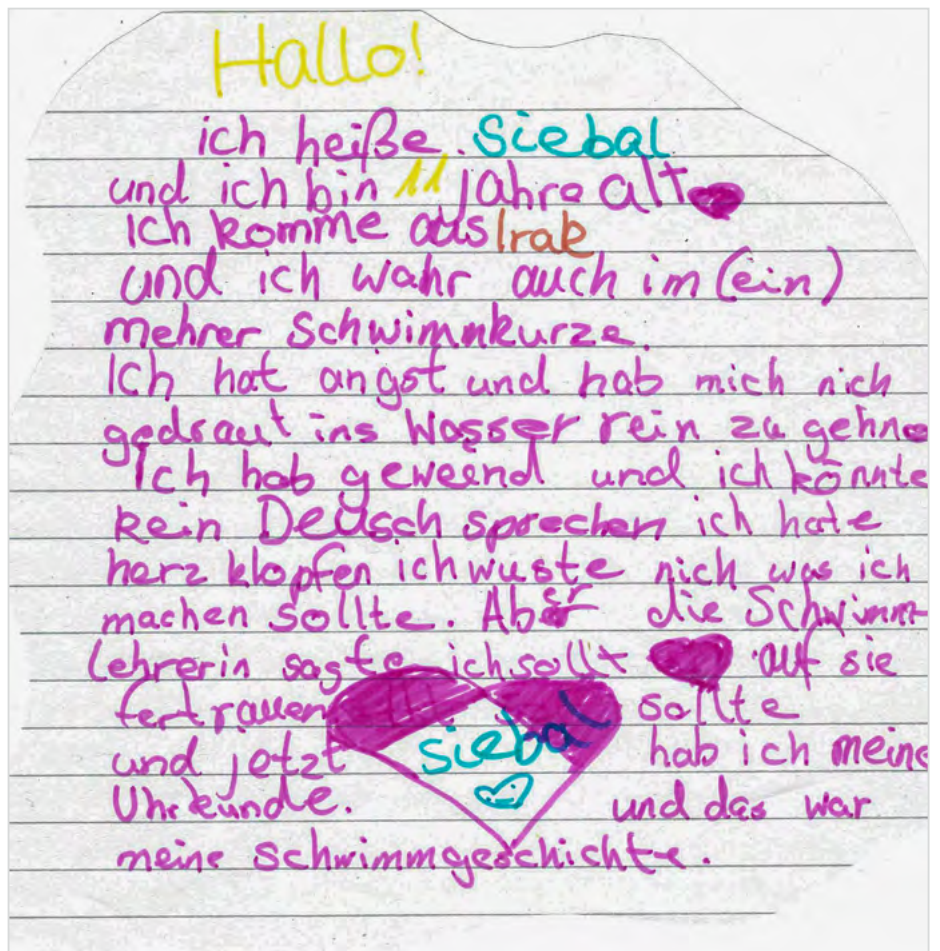 Hallo!
ich heiße. Siebal
und ich bin 11 jahre alt
Ich komme aus Irak
und ich wahr auch im (ein)
mehrer Schwimnkurze.
Ich hat angst und hab mich nich
gedraut ins Wasser rein zu gehne
Ich hab geweend und ich könnte
kein Deusch sprechen ich hate
herz klopfen ich wuste nich was ich
machen sollte. Aber die Schwimm
Lehrerin sagte ich sollt auf sie
fertrauen sollte
und jetzt Siebal hab ich meine
Uhrkunde. und das war
meine Schwimmgeschichte.